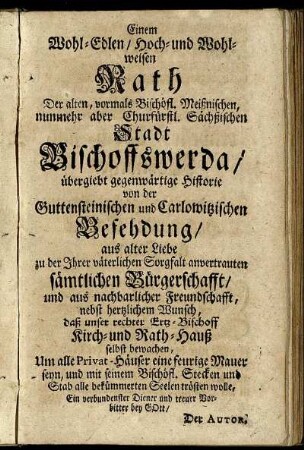 Einem
Wohl-Edlen/ Hoch- und Wohl-
weisen
Rath
Der alten, vormals Bischöfl. Meißnischen,
nunmehr aber Churfürstl. Sächßischen
Stadt
Bischoffswerda/
übergiebt gegenwärtige Historie
von der
Guttensteinischen und Carlowitzischen
Befehdung/
aus alter Liebe
zu der Ihrer väterlichen Sorgfalt anvertrauten
sämtlichen Bürgerschafft/
und aus nachbarlicher Freundschafft,
nebst hertzlichem Wunsch,
daß unser rechter Ertz-Bischoff
Kirch- und Rath-Hauß
selbst bewachen,
Um alle Privat-Häuser eine feurige Mauer
seyn, und mit seinem Bischöfl. Stecken und
Stab alle bekümmerten Seelen trösten wolle,
Ein verbundenster Diener und treuer Vor-
bitter bey GOtt/
Der AUTOR.